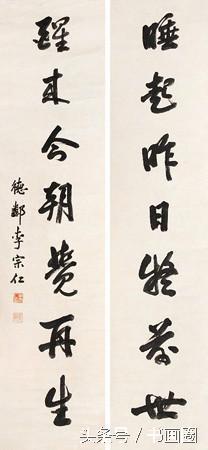 睡起昨日疑前世
醒來今朝覺再生
德鄰李宗仁
头条号 / 书画圈